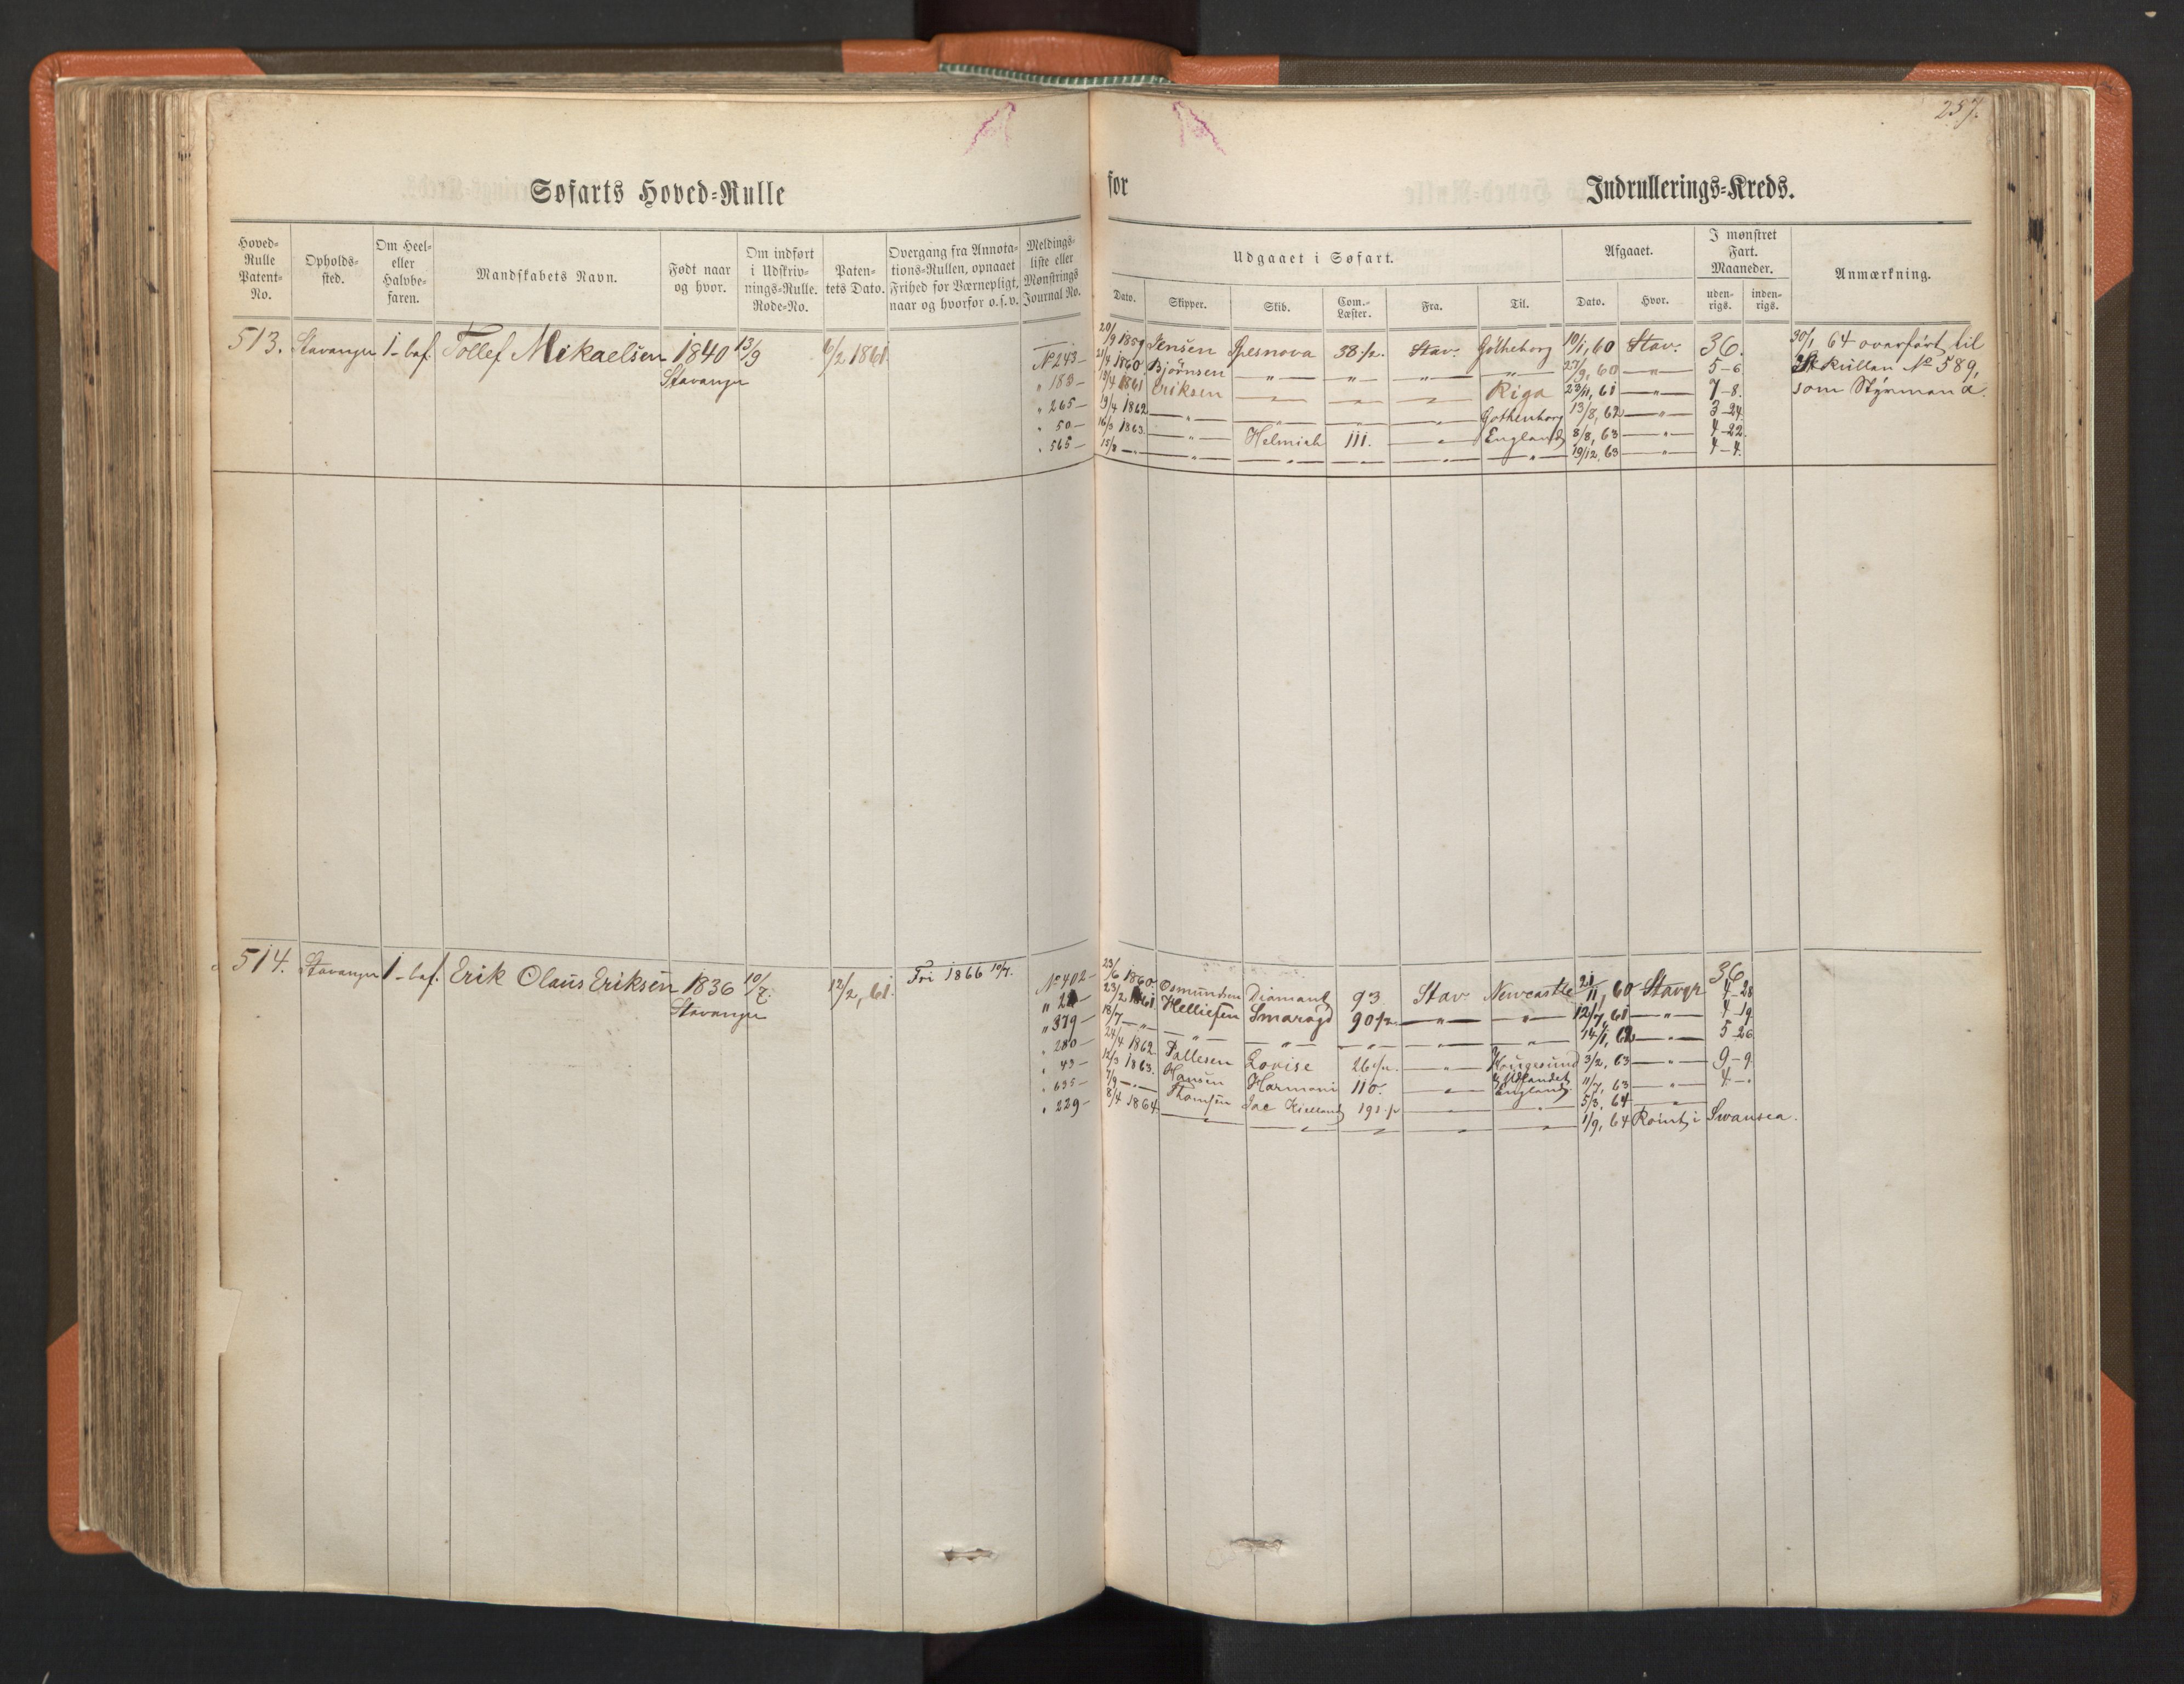 257.
Søfarts Hoved-Rulle for Indrullerings-Kreds.
Hoved-Rulle Patent-No. Opholds-sted. Om Heel- eller Halvbe-faren. Mandskabets Navn. Født naar og hvor. Om indført i Udskriv-nings-Rulle. Rode-No. Paten-tets Dato. Overgang fra Annota-tions-Rullen, opnaaet Frihed for Værnepligt, naar og hvorfor o.s.v. Meldings-liste eller Mønstrings Journal No.
Udgaaet i Søfart. Afgaaet. I mønstret Fart. Maaneder. Anmærkning.
Dato. Skipper. Skib. Com.-Læster. Fra. Til. Dato. Hvor. uden-rigs. inden-rigs.
513. Stavanger 1-baf. Tollef Mikaelsen 1840 13/9 6/2 1861
Stavanger
20/9 1859 Jensen Spesnova 38 1/2. Stav. Gotheborg 10/1, 60 Stav. 36. 30/1 64 overført til
No 243 — 21/4 1860 Bjørnsen — " — — " — — " — — " — 27/9, 60 — " — 5-6 rullen No 589,
" 183 — 13/4 1861 Eriksen — " — — " — — " — Riga 23/11, 61 — " — 7-8. som Styrmand.
" 265 — 19/4 1862 — " — — " — — " — — " — Gothenborg 13/8, 62 — " — 3-24
" 50 — 16/3 1863. — " — Helmich 111. — " — England 8/8, 63 — " — 4-22.
" 565 — 15/8 — " — — " — — " — — " — — " — — " — 19/12, 63 — " — 4-4.
514. Stavanger 1-baf. Erik Olaus Eriksen 1836 10/7. 12/2, 61. Fri 1866 10/4.
Stavanger
36
No 402 — 23/6 1860. Osmundsen Diamant 93 Stav. Newcastle 21/11, 60 Stavgr 4-28
" 23/2 1861 Helliesen Smaragd 90 1/2 — " — — " — 12/7, 61 — " — 4-19
" 379 — 18/7 — " — — " — — " — — " — — " — — " — 14/1, 62 — " — 5-26
" 280 — 24/4 1862 Pallesen Lovise 26 1/2. — " — Haugesund 3/2, 63 — " — 9-9
" 43 — 12/3 1863. Hansen Harmoni 110. — " — Udlandet 11/7, 63 — " — 4-"
" 635 — 7/9 — " — Thomsen Jac Kielland 191 1/2 — " — England 5/3, 64 — " —
" 229 — 8/4 1864 — " — — " — — " — — " — — " — 1/9, 64 Rømt i Swansea.